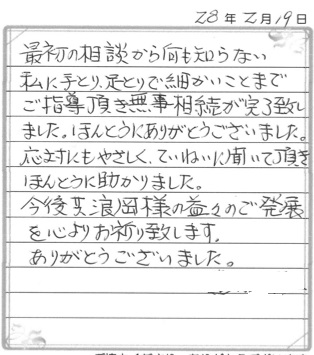 28年2月19日
最初の相談から何も知らない
私に手とり、足とりで細かいことまで
ご指導頂き無事相続が完了致し
ました。ほんとうにありがとうございました。
応対にもやさしく、ていねいに聞いて頂き
ほんとうに助かりました。
今後共浪岡様の益々のご発展
を心よりお祈り致します。
ありがとうございました。